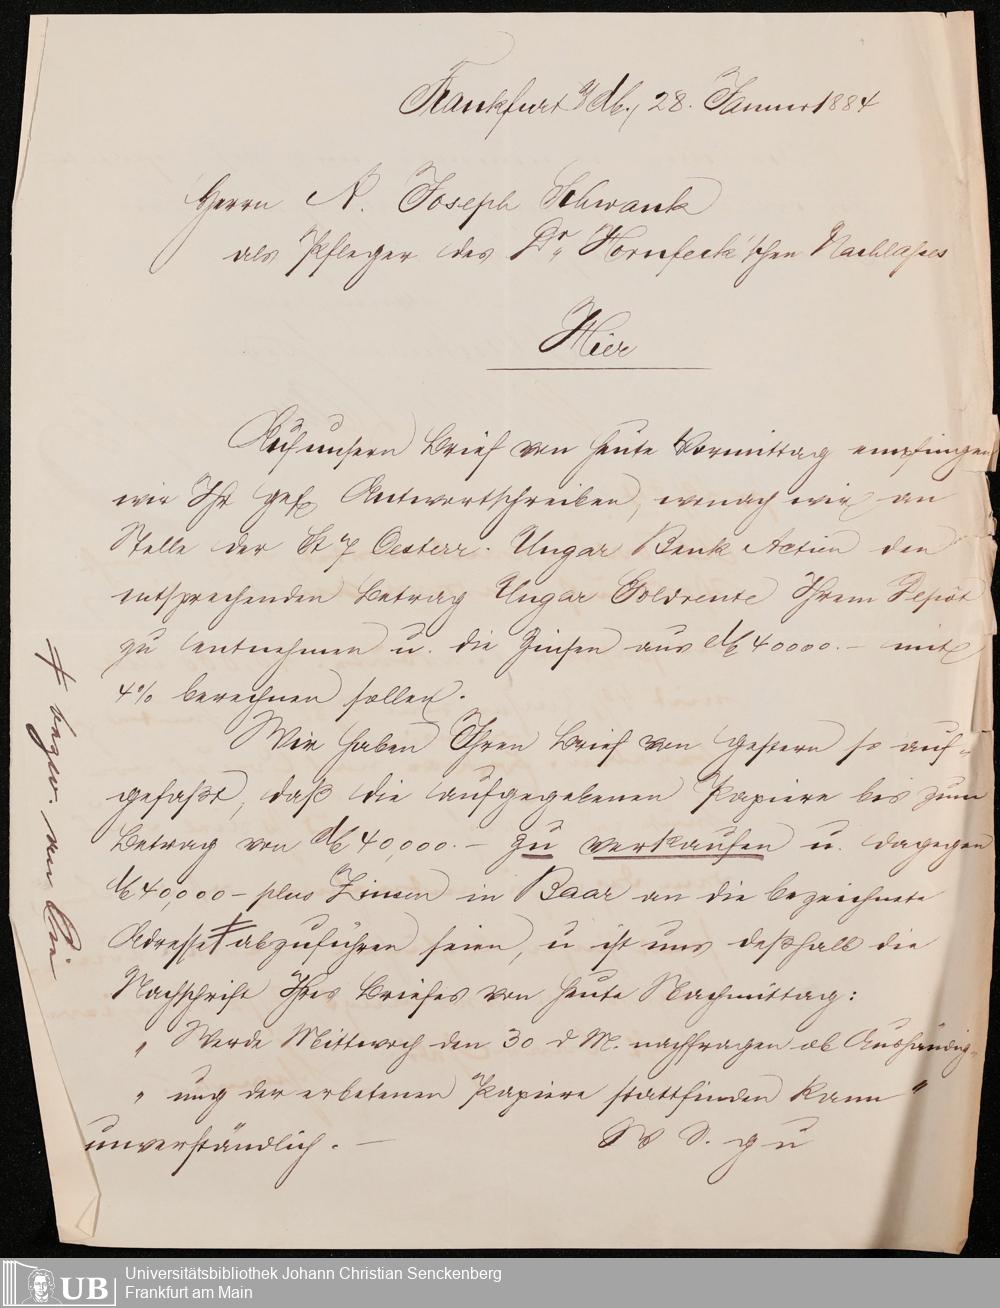 Frankfurt a/M., 28. Januar 1884
Herrn A. Joseph Schwank
als Pfleger des Dr. Hornfeck'schen Nachlasses
Hier
Auf unsern Brief von heute Vormittag empfingen
wir Ihr gef. Antwortschreiben, wonach wir an
Stelle der St 7 Oesterr. Ungar Bank Actien den
entsprechenden Betrag Ungar Goldrente Ihrem Depôt
zu entnehmen u. die Zinsen aus M 40000.– mit
4% berechnen sollen.
Wir haben Ihren Brief von gestern so auf-
gefaßt, daß die aufgegebenen Papiere bis zum
Betrag von M 40,000.– zu verkaufen u. dagegen
M 40,000 – plus Zinsen in Baar an die bezeichnete
Adresse ⧧ abzuführen seien, u ist uns deßhalb die
Nachschrift Ihres Briefes von heute Nachmittag:
„ Werde Mittwoch den 30 d M. nachfragen ob Aushändig-
„ ung der erbetenen Papiere stattfinden kann "
unverständlich. –
⧧ bezw. an Sie
Universitätsbibliothek Johann Christian Senckenberg
Frankfurt am Main
UB